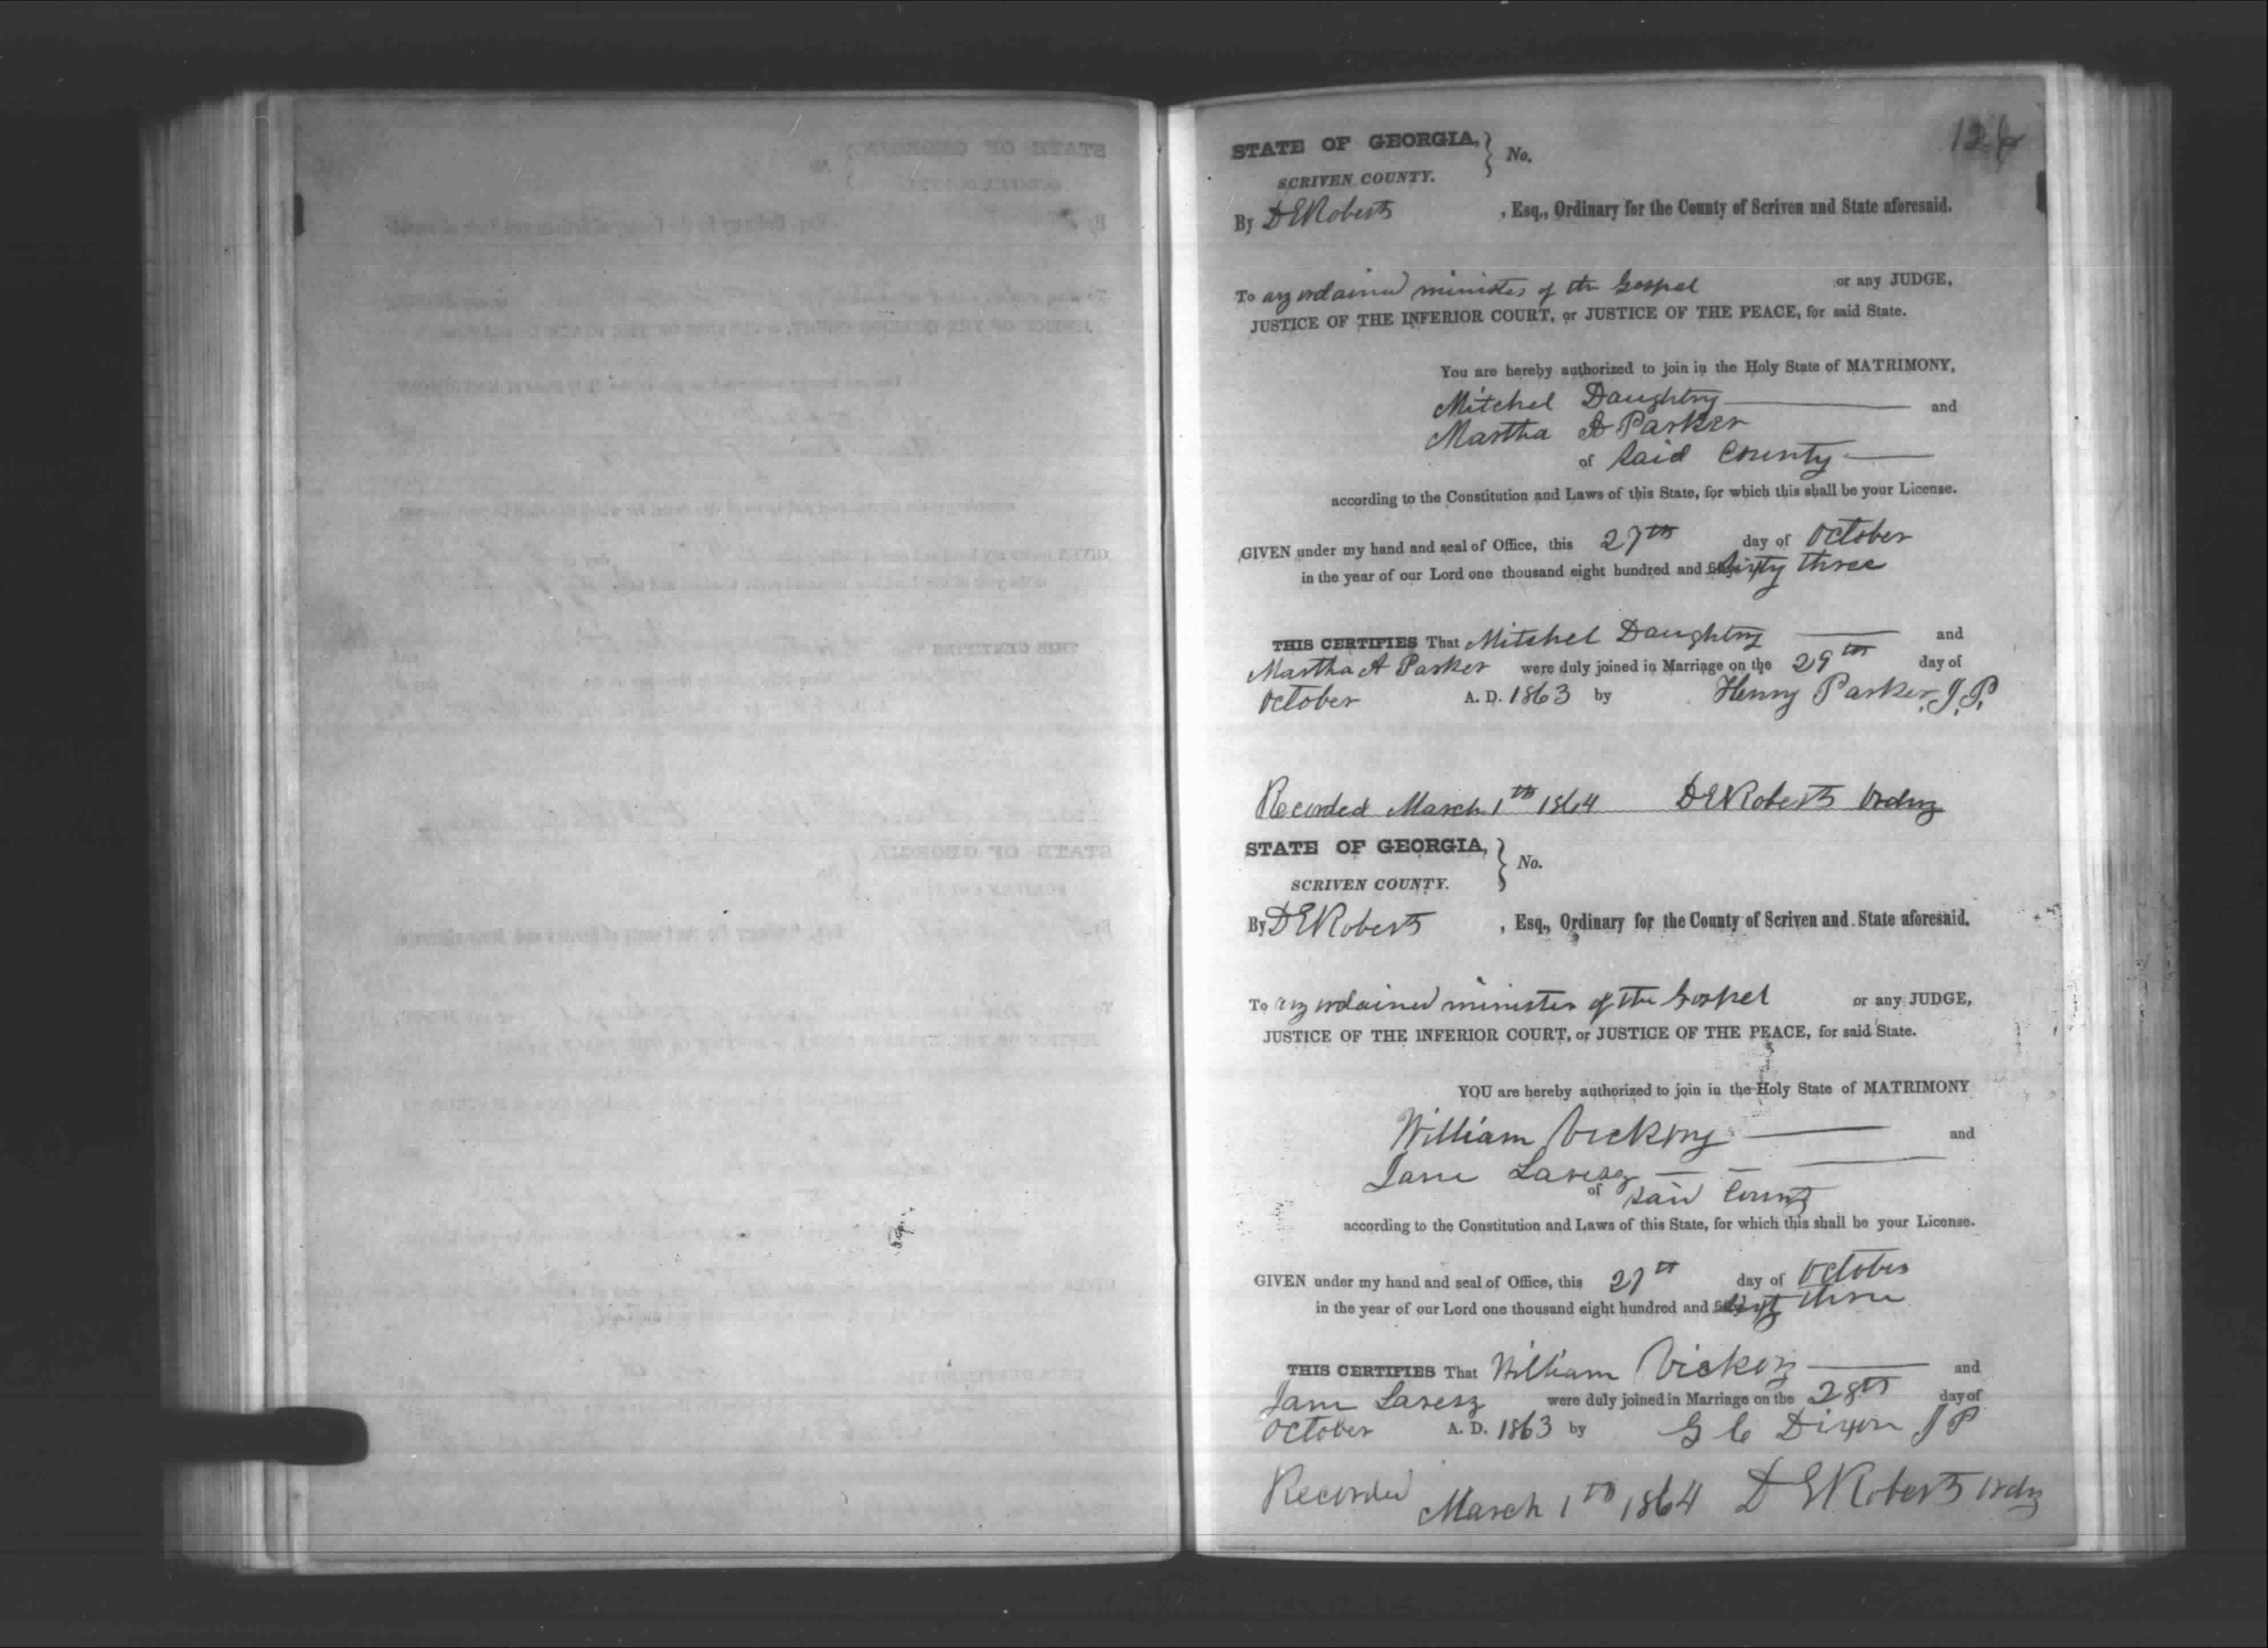 STATE OF GEORGIA, } No.
SCRIVEN COUNTY.
By D E Roberts , Esq., Ordinary for the County of Scriven and State aforesaid.
To any ordained minister of the Gospel or any JUDGE,
JUSTICE OF THE INFERIOR COURT, or JUSTICE OF THE PEACE, for said State.
You are hereby authorized to join in the Holy State of MATRIMONY,
Mitchel Daughtry and
Martha A Parker
of Said County
according to the Constitution and Laws of this State, for which this shall be your License.
GIVEN under my hand and seal of Office, this 27th day of October
in the year of our Lord one thousand eight hundred and sixty three
THIS CERTIFIES That Mitchel Daughtry and
Martha A Parker were duly joined in Marriage on the 29th day of
October A. D. 1863 by Henry Parker, J.P.
Recorded March 1th 1864 D E Roberts Ordny
STATE OF GEORGIA, } No.
SCRIVEN COUNTY.
By D E Roberts , Esq., Ordinary for the County of Scriven and State aforesaid.
To any ordained minister of the Gospel or any JUDGE,
JUSTICE OF THE INFERIOR COURT, or JUSTICE OF THE PEACE, for said State.
YOU are hereby authorized to join in the Holy State of MATRIMONY
William Vickery and
Jane
of said County
according to the Constitution and Laws of this State, for which this shall be your License.
GIVEN under my hand and seal of Office, this 27th day of October
in the year of our Lord one thousand eight hundred and sixty three
THIS CERTIFIES That William Vickery and
Jane were duly joined in Marriage on the 28th day of
October A. D. 1863 by G C Dixon J P
Recorded March 1th 1864 D E Roberts Ordny